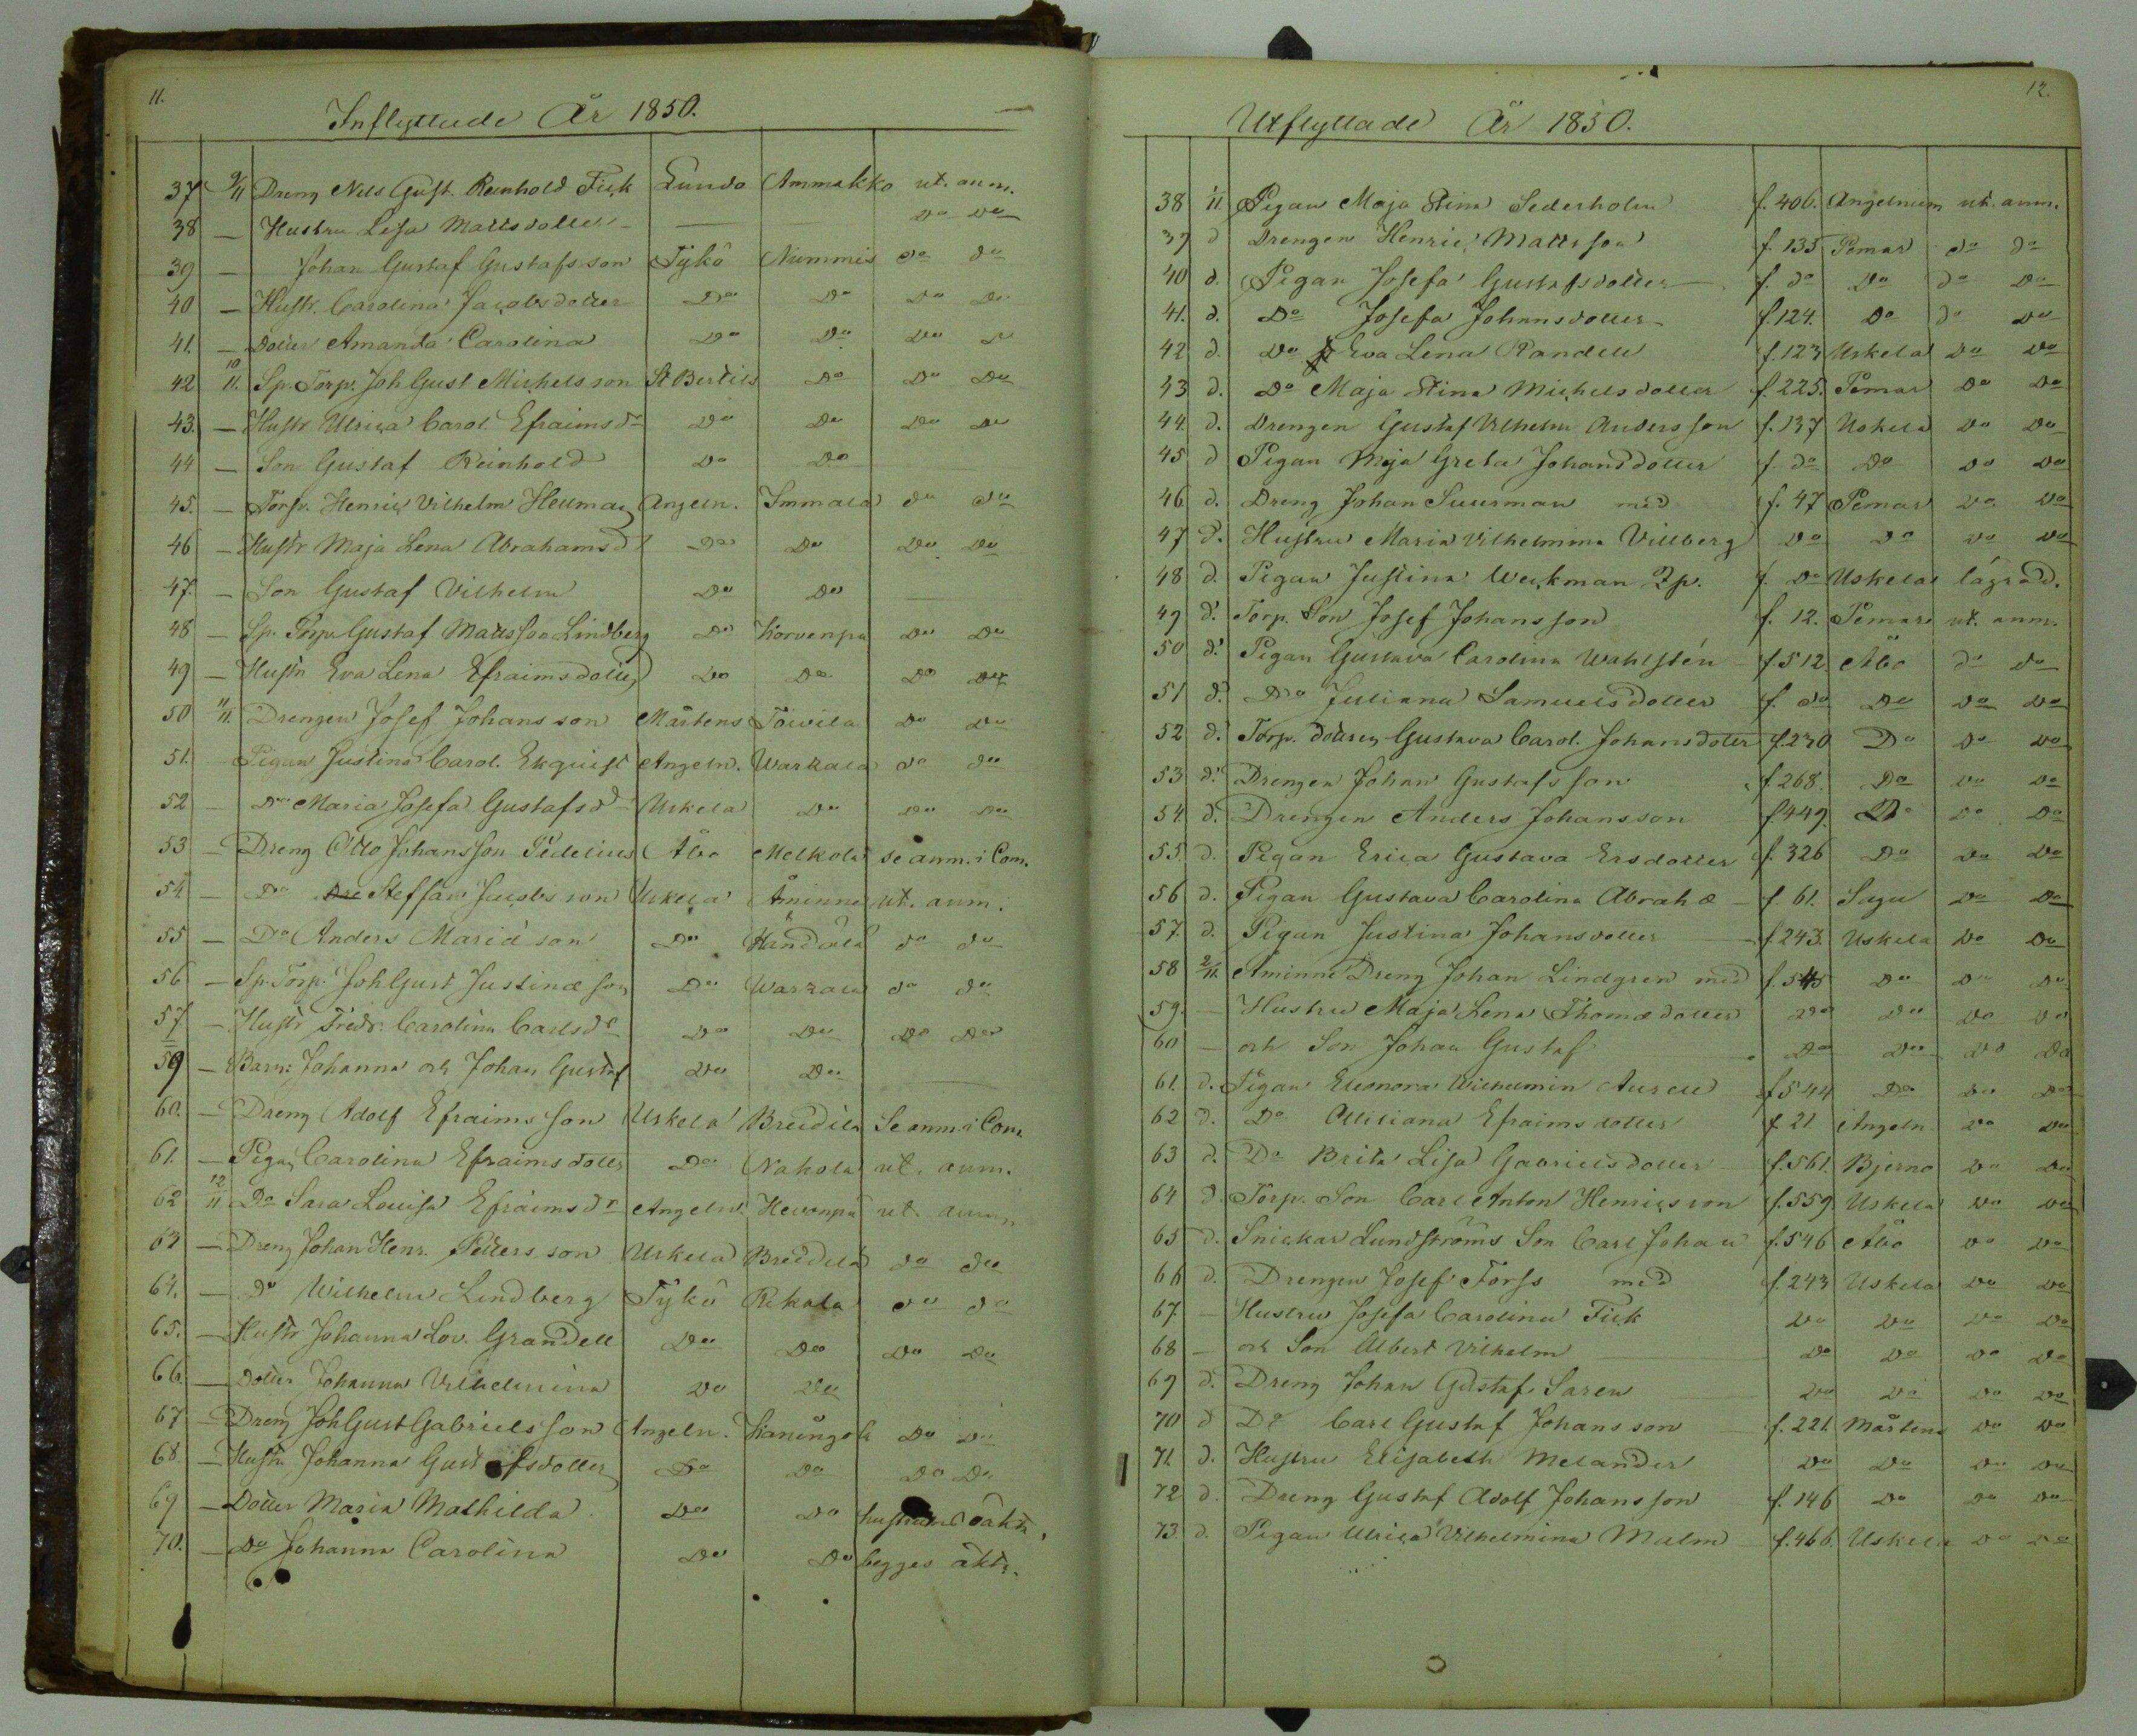 11.
Inflyttade År 1850.
37 9/11 Dreng Nils Gust. Reinhold Fick Lundo Ammakko ut. anm.
38 — Hustru Lisa Mattsdotter — Do Do
39 — Johan Gustaf Gustafsson Tykö Nummis do do
40 — Hustr. Carolina Jacobsdotter Do Do Do Do
41. — Dotter Amanda Carolina Do Do Do Do
42 10/11. Sp. Torp. Joh Gust Michelsson St Bertils Do Do Do
43. — Hustr Ulrica Carol. Efraimsdr Do Do Do Do
44 — Son Gustaf Reinhold Do Do
45. — Torp. Henric Vilhelm Heuman Angeln. Immala do do
46 — Hustr Maja Lena Abrahamsdr Do Do Do Do
47. — Son Gustaf Vilhelm Do Do —
48 — Sp. Torp. Gustaf Mattsson Lindberg Do Korvenpä Do Do
49 — Hustr Eva Lena Efraimsdotter Do Do Do Do
50 11/11. Drengen Josef Johansson Mårtens Toivila Do Do
51. — Pigan Justina Carol. Ekquist Angeln. Warkala do do
52 — Do Maria Josefa Gustafsd Uskela Do Do Do
53 — Dreng Otto Johansson Pedelius Åbo Melkola se anm. i Com.
54. — Do Steffan Jacobsson Uskela Åminne ut. anm.
55 — Do Anders Mariæson Do Händälä do do
56 — Sp. Torp. Joh Gust Justinæson Do Do do
57 — Hustr Fredr. Carolina Carlsdr Do Do Do Do
59 — Barn: Johanna och Johan Gustaf Do Do —
60. — Dreng Adolf Efraimsson Uskela Breidilä Se anm. i Com.
61. — Pigan Carolina Efraimsdotter Do Nakola ut. anm.
62 12/11 Do Sara Lovisa Efraimsdr Angeln. Hevonpä ut. anm.
63 — Dreng Johan Henr. Pettersson Uskela Breidilä do do
64. — Do Wilhelm Lindberg Tykö Rekola do do
65. — Hustr Johanna Lov. Grandell Do Do Do Do
66. — Dotter Johanna Vilhelmina Do Do
67 — Dreng Joh Gust Gabrielsson Angeln. Kaningok Do Do
68. — Hustr Johanna Gustafsdotter Do Do Do Do
69 — Dotter Maria Mathilda Do Do hustruns oäkta,
70. — Do Johanna Carolina Do Do begges äkta.
12.
Utflyttade År 1850.
38 1/11 Pigan Maja Stina Sederholm f. 406. Angelniem ut. anm.
39 d Drengen Henric Mattsson f. 135 Pemar do do
40 d. Pigan Josefa Gustafsdotter f. do Do do Do
41. d. Do Josefa Johansdotter f. 124. Do do Do
42 d. Do Eva Lena Randell f. 123 Uskela Do Do
43 d. Do Maja Stina Michelsdotter f. 225. Pemar Do Do
44. d. Drengen Gustaf Vilhelm Andersson f. 137 Uskela Do Do
45 d Pigan Maja Greta Johansdotter f. do Do Do Do
46 d. Dreng Johan Suurman med f. 47 Pemar Do Do
47 d. Hustru Maria Vilhelmina Villberg Do Do Do Do
48 d. Pigan Justina Weckman f. Do Uskela
49 d. Torp. Son Josef Johansson f. 12. Pemar ut. anm.
50 d. Pigan Gustava Carolina Wahlstén f. 512. Åbo do Do
51 d. Do Juliana Samuelsdotter f. do Do Do Do
52 d. Torp. dottren Gustava Carol. Johansdoter f. 230 Do Do Do
53 d. Drengen Johan Gustafsson f. 268. Do Do Do
54 d. Drengen Anders Johansson f 449. Do Do Do
55. d. Pigan Erica Gustava Ersdotter f. 326 Do Do Do
56 d. Pigan Gustava Carolina Abrah d f. 61. Sagu Do Do
57. d. Pigan Justina Johansdotter f. 243. Uskela Do Do
58 2/11. Åminne Dreng Johan Lindgren med f. 545 Do Do Do
59. — Hustru Maja Lena Thomædotter Do Do Do Do
60 — och Son Johan Gustaf Do Do Do Do
61. d. Pigan Eleonora Wilhelmin Aurell f 544 Do Do Do
62 d. Do Ulliana Efraimsdotter f 21 Angeln Do Do
63 d. Do Brita Lisa Gabrielsdotter f. 561. Bjerno Do Do
64 d. Torp. Son Carl Anton Henricsson f. 559 Uskela Do Do
65 d. Snickar Lundströms Son Carl Johan f. 546 Åbo Do Do
66 d. Drengen Josef Forss med f. 243 Uskela Do Do
67 — Hustru Josefa Carolina Fick Do Do Do Do
68 — och Son Albert Vilhelm Do Do Do Do
69 d. Dreng Johan Gustaf Saren Do Do Do Do
70 d Do Carl Gustaf Johansson f. 221. Mårtens Do Do
71. d. Hustru Elisabeth Melander Do Do Do Do
72 d. Dreng Gustaf Adolf Johansson f. 146 Do Do Do
73. d. Pigan Ulrica Vilhelmina Malm f. 466. Uskela Do Do